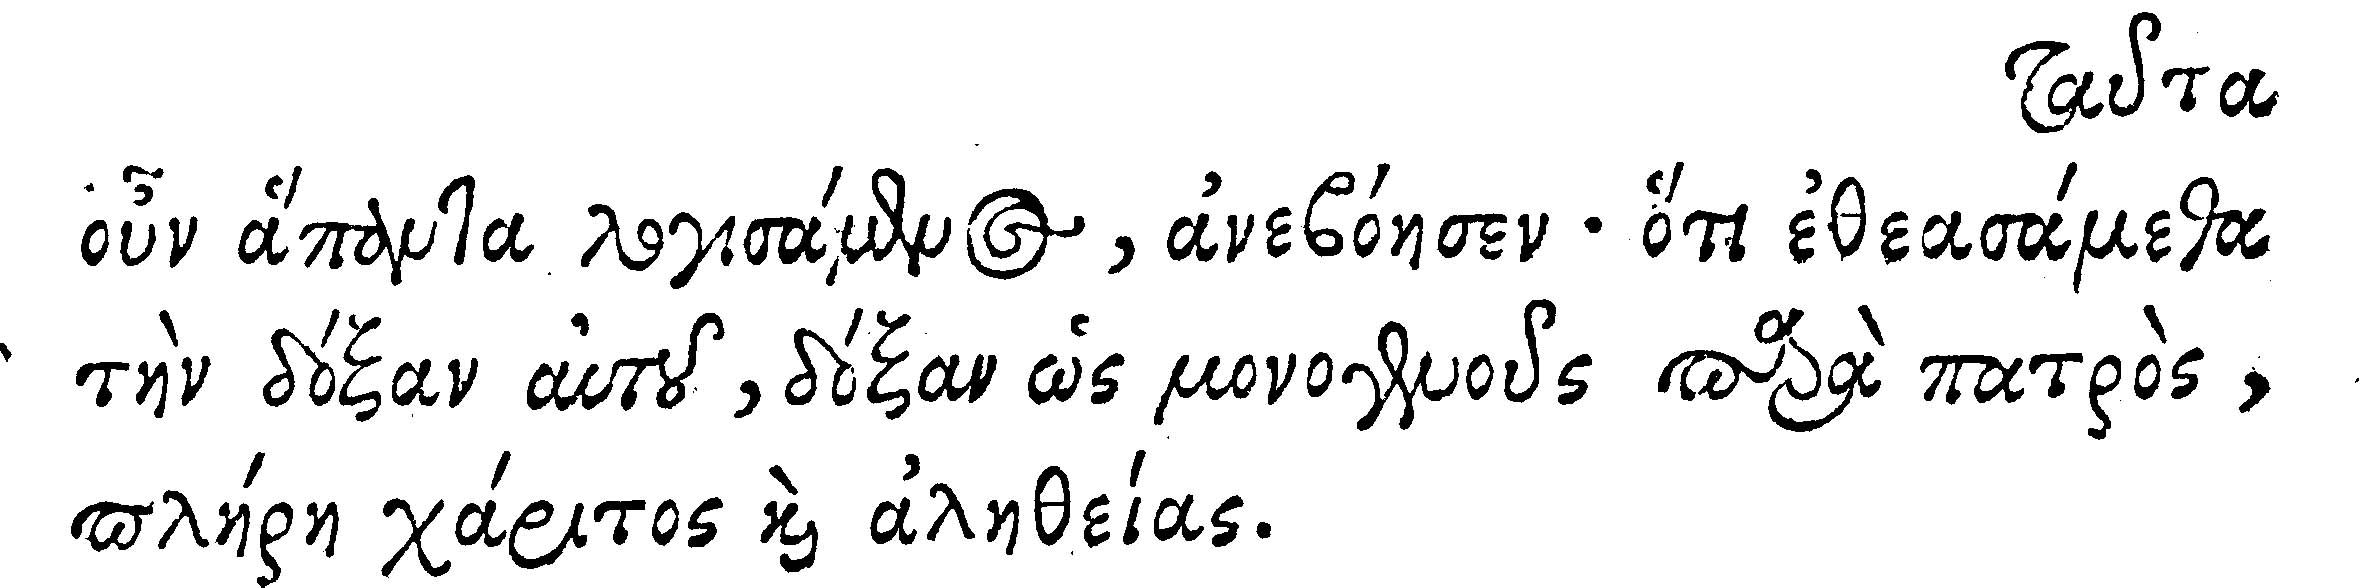 ταῦτα
οὖν ἅπαντα λογισάμενος, ἀνεβόησεν· ὅτι ἐθεασάμεθα
τὴν δόξαν αὐτοῦ, δόξαν ὡς μονογενοῦς παρὰ πατρὸς,
πλήρη χάριτος καὶ ἀληθείας.